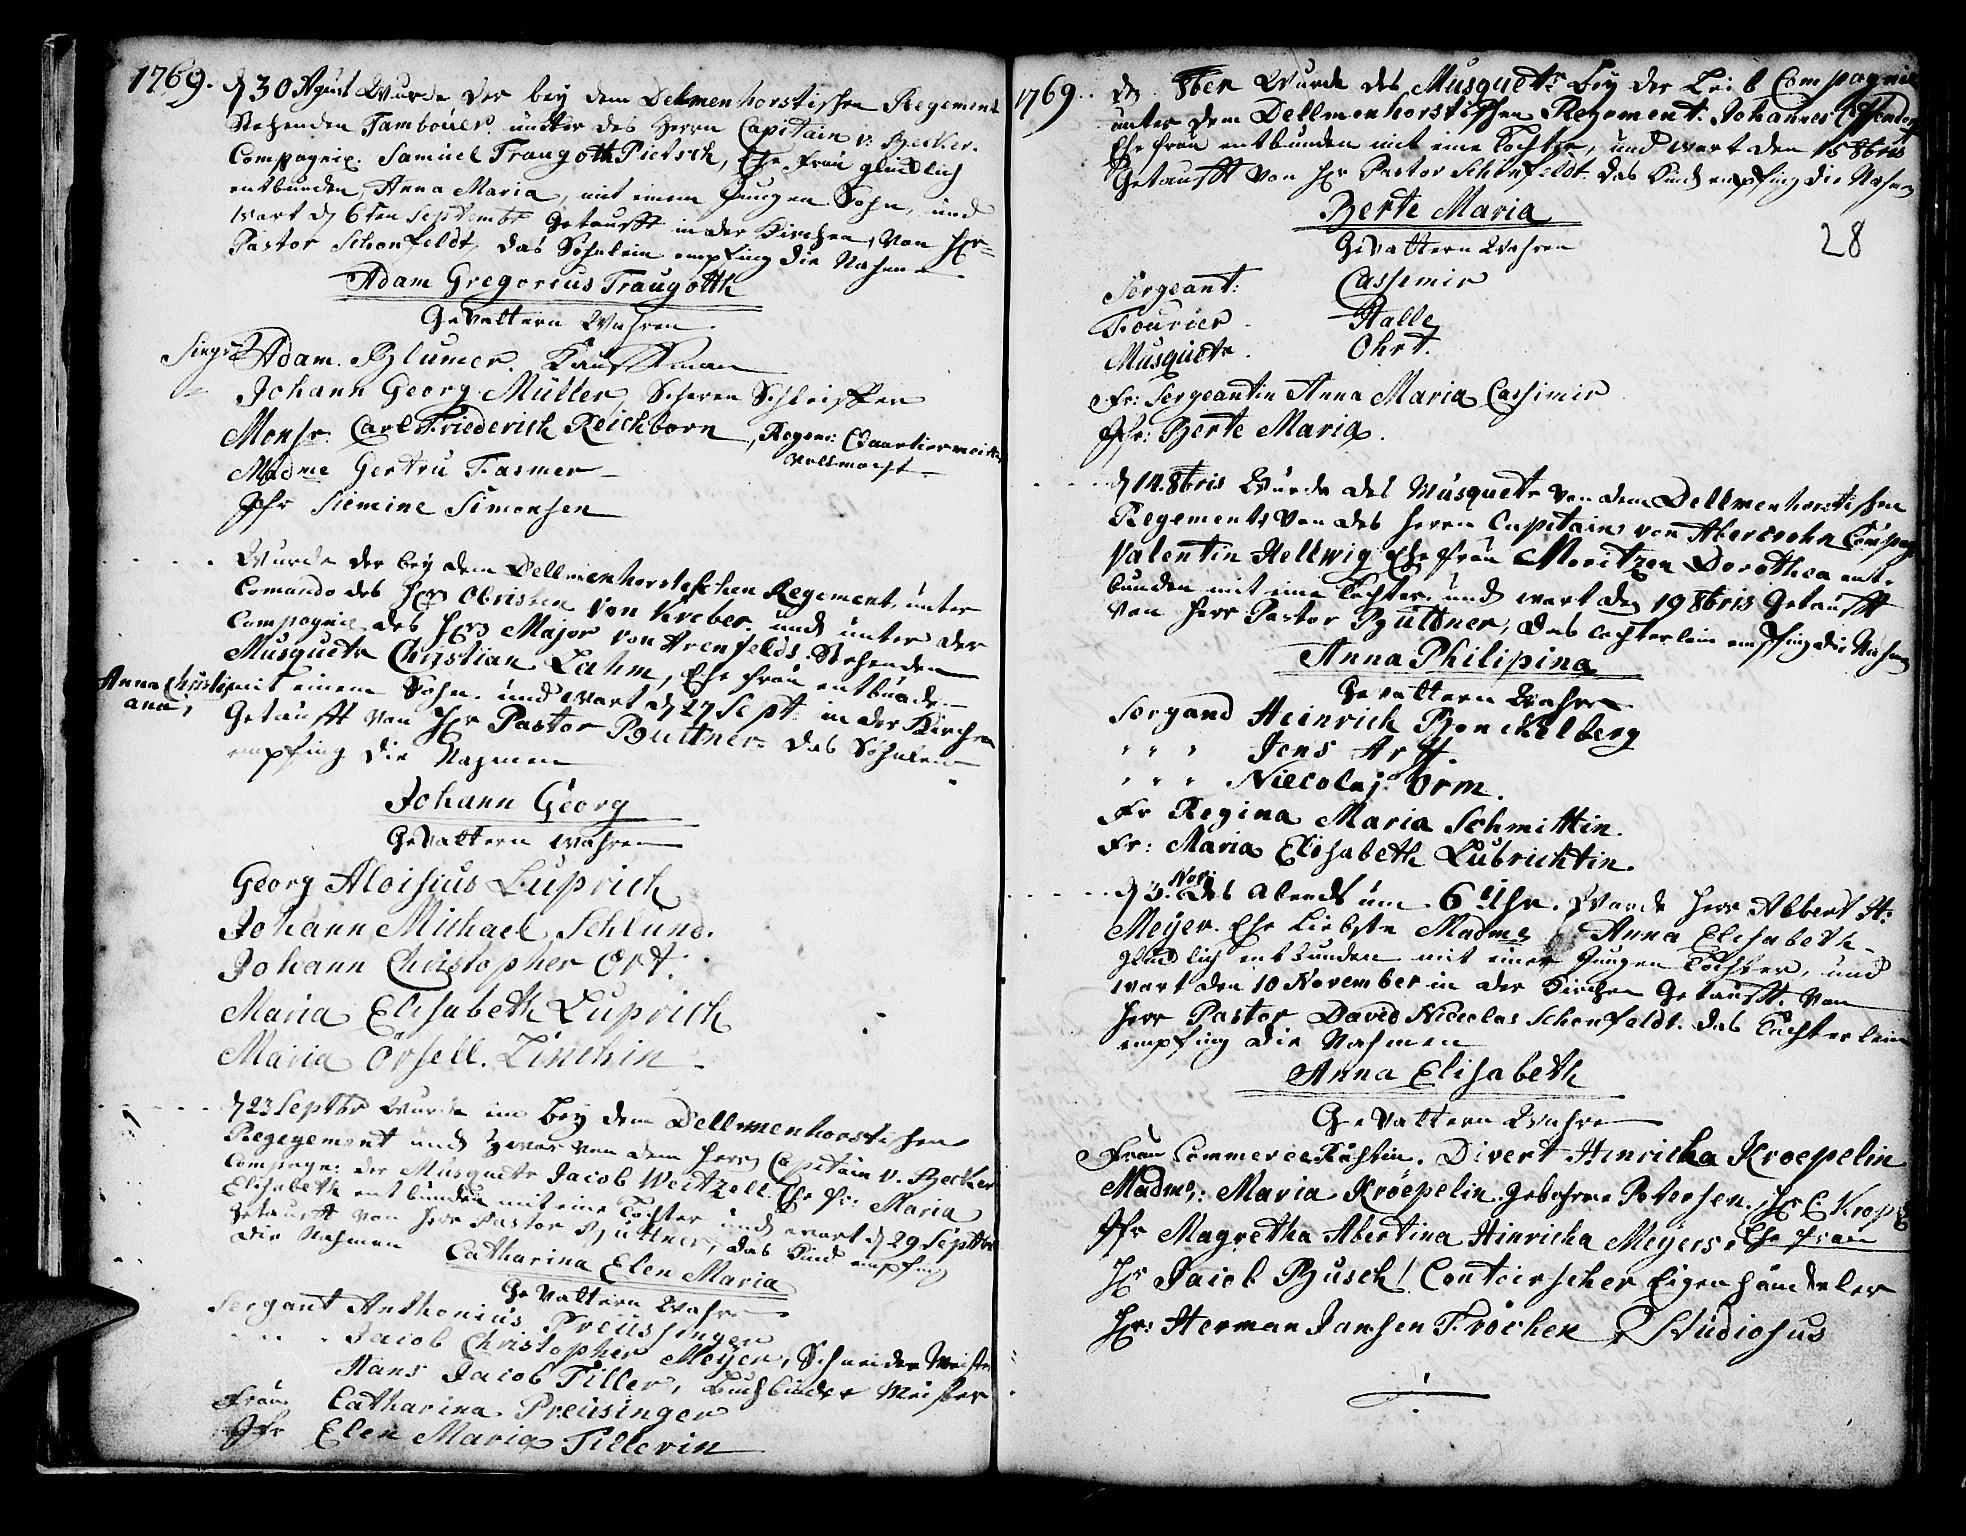 1769. d 30 Agust Wurde der bey dem Delmenhorstischen Regement
stehenden Tambouer. undter des Herrn Capitain v: Becker.
Compagnie. Samuel Traugott Pietsch, Ehe Frau glücklich
entbunden, Anna Maria, mit einem Jungen Sohn, und
wart d 6ten Septembr Getaufft in der Kirchen, von Hr=
Pastor Schonfeldt, das Sohnlein empfing die Nahmen
Adam Gregorius Traugotth
Gevattern Wahren
Adam. Blumer. Kauffman
Johann Georg Müller, Scheren Schleiffer
Monsr. Carl Friederich Reichborn, Regem: Quartiermeister
Vollmacht
Madme Gertru Fasmer
Jfr Siemine Simonsen
Wurde der bey dem Dellmenhorstischen Regement, unter
Comando des Hrn Obristen von Kreber. und unter der
Compagnie des Hrn Major von Arenfelds. Stehenden
Musquetr Christian Lahm, Ehe frau entbunden
Anna Christi mit einem Sohn. und wart d 27 Sept. in der Kirchen
ana, Getaufft von Hr Pastor Buttner. das Sohnlein
empfing die Nahmen
Johann Georg
Gevattern wahren
Georg Aloisius Luprich
Johann Michael Schlund.
Johann Christopher Ort.
Maria Elisabeth Luprich
Maria Örsell. Linchin
d 23 Septbr Wurde im bey dem Dellmenhorstischen
Regegement und zwar von dem Herrn Capitain v. Becker
Compagn: der Musquetr Jacob Weitzell. Ehe fr: Maria
Elisabeth entbunden mit eine Tochter und wart d 29 Septbr
Getaufft von Herr Pastor Buttner, das Kind empfing
die Nahmen Catharina Elen Maria
Gevattern Wahren
Sergant Anthonius Preussinger
Jacob Christopher Meyer, Schneider Meister
Hans Jacob Tiller, Buchbinder Meister
Frau Catharina Preusinger
Jfr Elen Maria Tillerin
1769. den 8ber Wurde des Musquetr. bey der Leib Compagnie
unter dem Dellmenhorstischen Regement. Johannes
Ehe frau entbunden mit eine Tochter, und wart den 15 8bris
Getaufft von Hr Pastor Schönfeldt. das Kind empfing die Nahmen
Berte Maria
28
Gevattern Wahren
Sergeant: Cassimir
Fourier Halle
Musquetr. Ohrt.
Fr: Sergeantin Anna Maria Casimir
Jfr: Berte Maria.
d 14. 8bris Wurde des Musquetr von dem Dellmenhorstischen
Regements von des Herrn Capitains von Abercrohn Compag
Valentin Hellwig Ehe frau Moritzen Dorothea ent-
bunden mit eine Tochter. und wart den 19 8bris Getaufft
von Herr Pastor Buttner, das Tochterlein empfing die Nahmen
Anna Philipina
Gevattern Wahren
Sergand Heinrich Bonckelberg
" " " Jens Arff.
" " " Niecolaj Orm.
Fr Regina Maria Schmittin.
Fr: Maria Elisabeth Lübrichtin.
d 3. Nov: des Abends um 6 Uhr. Wurde Herr Albert H:
Meyer. Ehe Liebste Madme Anna Elisabeth
glücklich entbunden mit einer Jungen Tochter, und
wart den 10 November in der Kirchen Getaufft. von
Herr Pastor David Nicolas Schonfeldt. das Tochterlein
empfing die Nahmen
Anna Elisabeth
Gevattern Wahren
Frau Commerce Rähtin. Divert Hinricha Kroepelin
Madme: Maria Kröepelin gebohrne Petersen. Hr C. Krop
Jfr Magretha Abertina Hinricha Meyers. Ehe frau
Hr Jacob Busch! Contoirscher Eigenhändeler
Hr: Herman Jansen Fröchen Studiosus